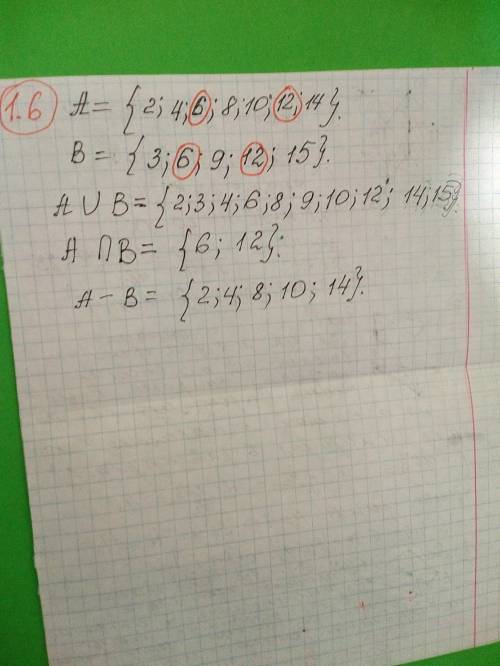 1.6 A = {2; 4; 6; 8; 10; 12; 14}.
B = {3; 6; 9; 12; 15}.
A ∪ B = {2; 3; 4; 6; 8; 9; 10; 12; 14; 15}.
A ∩ B = {6; 12}.
A − B = {2; 4; 8; 10; 14}.